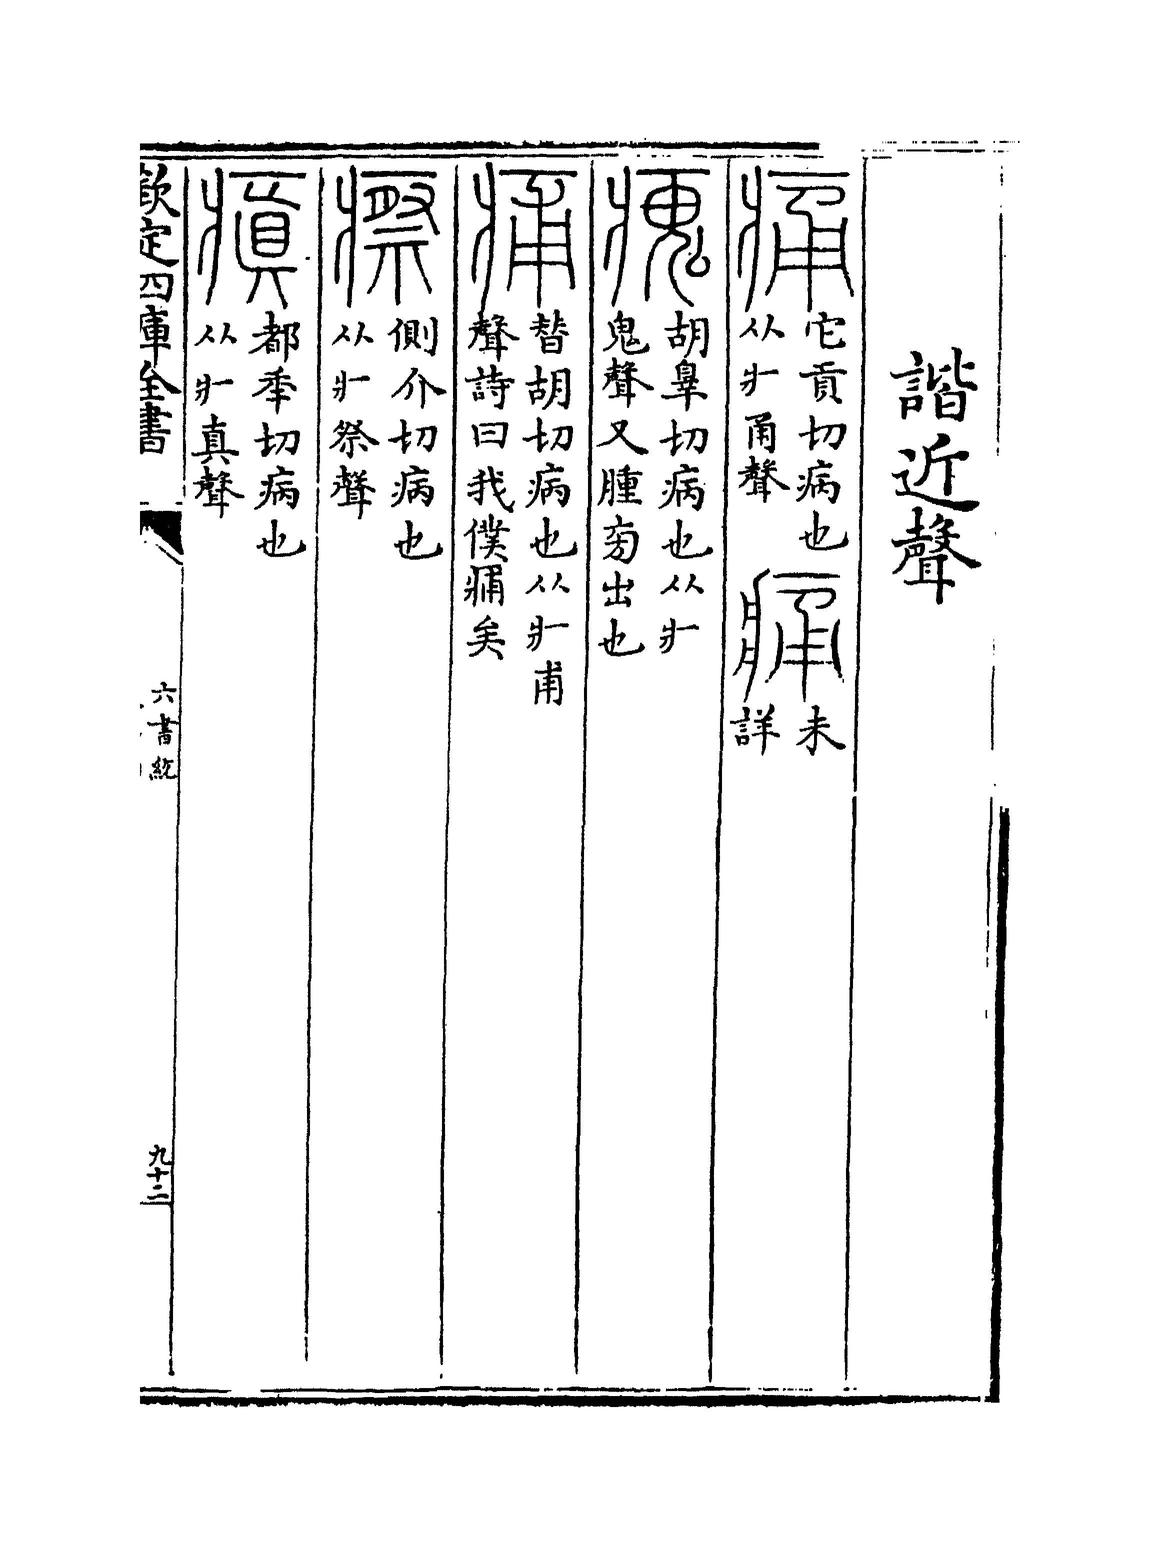 諧近聲
痛
它貢切病也
从爿甬聲
痛
未
詳
瘣
胡辠切病也从爿
鬼聲又腫旁出也
痡
普胡切病也从爿甫
聲詩曰我僕痡矣
瘵
側介切病也
从爿祭聲
瘨
都秊切病也
从爿真聲
欽定四庫全書
六書統
九十二